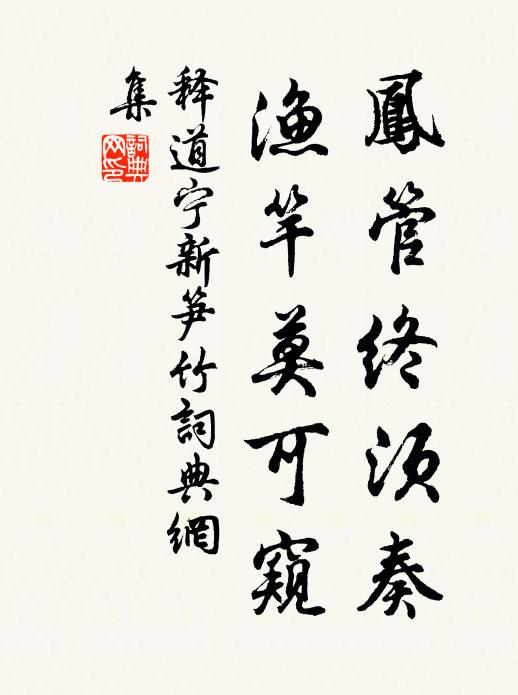 鳳管終須奏
漁竿莫可窺
释道宁新笋竹詞典網
集
詞典
网印